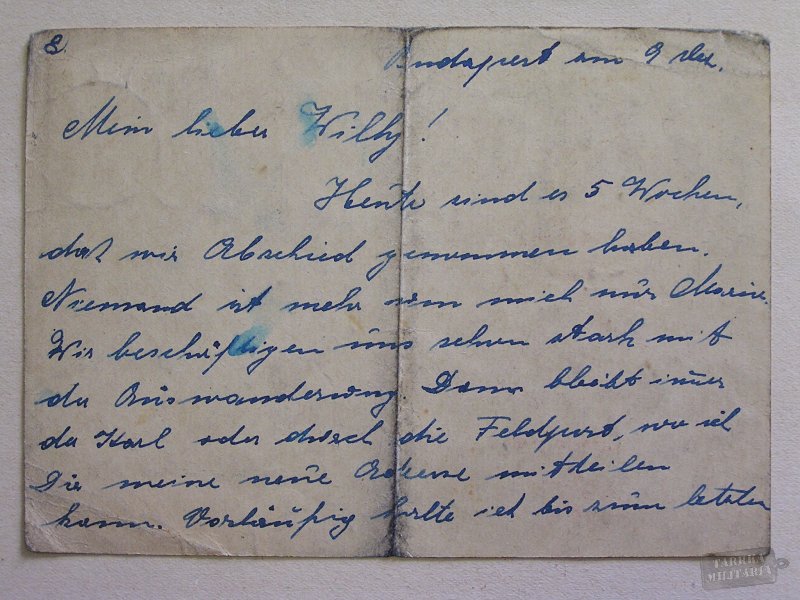 2.
Budapest am 9 Dez.
Mein lieber Willy!
Heute sind es 5 Wochen,
daß wir Abschied genommen haben.
Niemand ist mehr um mich nur Marin.
Wir beschäftigen uns schon stark mit
der Auswanderung. Dann bleibt immer
der Karl oder durch die Feldpost, wo ich
Dir meine neue Adresse mitteilen
kann. Vorläufig halte ich bis zum letzten
TARREX
MILITARIA